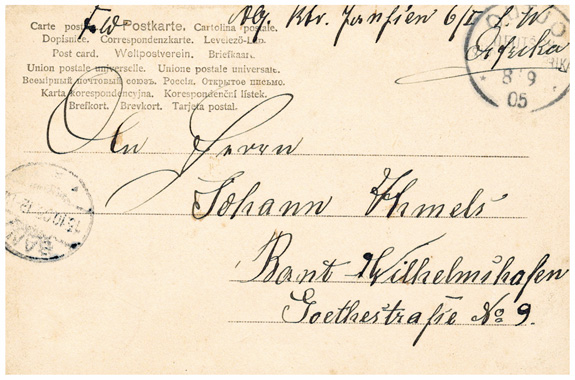 Carte postale. Feld Postkarte. Cartolina postale.
Dopisnice. Correspondenzkarte. Levelező-Lap.
Post card. Weltpostverein. Briefkaart.
Union postale universelle. Unione postale universale.
Всемірный почтовый союзъ. Россія. Открытое письмо.
Karta korespondencyjna. Korespondenční lístek.
Brefkort. Brevkort. Tarjeta postal.
6/II S. W.
Afrika
8 9
05
An Herrn
Johann Ihmels
Bant-Wilhelmshafen
Goethestraße No 9.
BANT